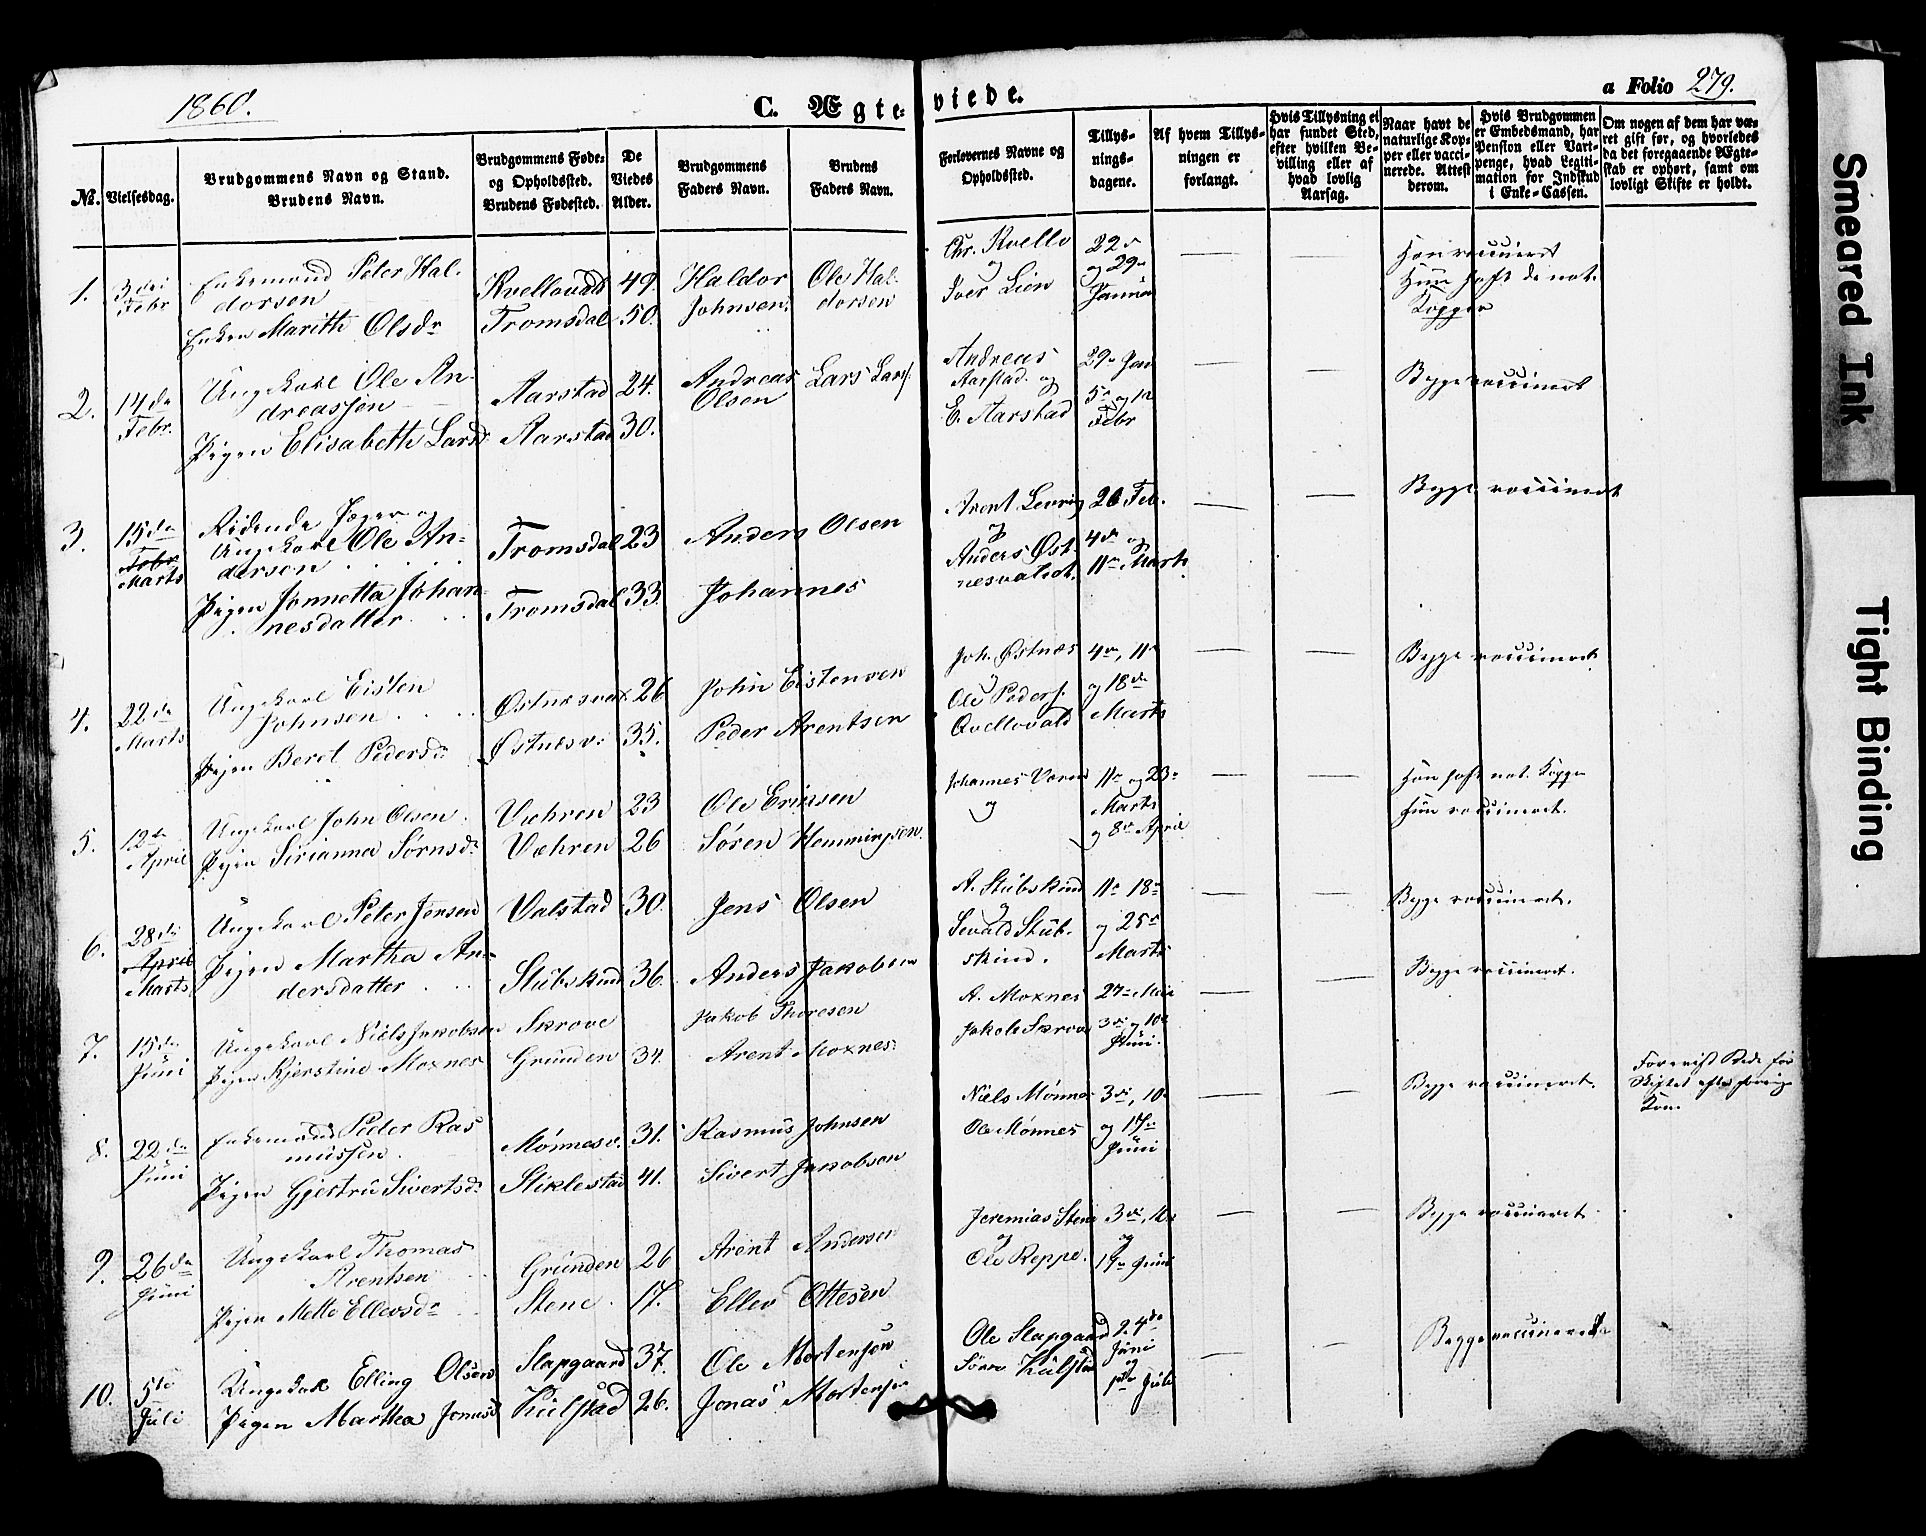 1860.
C. Ægte-
viede.
a Folio 279.
No.
Vielsesdag.
Brudgommens Navn og Stand.
Brudens Navn.
Brudgommens Føde-
og Opholdssted.
Brudens Fødested.
De
Viedes
Alder.
Brudgommens
Faders Navn.
Brudens
Faders Navn.
Forlovernes Navne og
Opholdssted.
Tillys-
nings-
dagene.
Af hvem Tillys-
ningen er
forlangt.
Hvis Tillysning ei
har fundet Sted,
efter hvilken Be-
villing eller af
hvad lovlig
Aarsag.
Naar havt de
naturlige Kop-
per eller vacci-
nerede. Attest
derom.
Hvis Brudgommen
er Embedsmand, har
Pension eller Vart-
penge, hvad Legiti-
mation for Indskud
i Enke-Cassen.
Om nogen af dem har væ-
ret gift før, og hvorledes
da det foregaaende Ægte-
skab er ophørt, samt om
lovligt Skifte er holdt.
1.
3die
Febr
Enkemand Peter Hal-
dorsen
Enken Marith Olsdr
Kvellovald 49.
Tromsdal 50.
Haldor
Johnsen.
Ole Hal-
dorsen
Chr. Kvello
og
Iver Lien
22de
og 29de
Januar
Han vaccineret
Hun haft de nat.
Kopper
2.
14de
Febr.
Ungekarl Ole An-
dreassen
Pigen Elisabeth Larsd
Aarstad 24.
Aarstad 30.
Andreas
Olsen
Lars Lars.
Andreas
Aarstad og
E. Aarstad
29de Jan
5te og 12
Febr
Begge vaccineret
3.
15de
Febr
Marts
Ridende Jæger og
Ungekarl Ole An-
dersen
Pigen Jonnetta Johan-
nesdatter
Tromsdal 23
Tromsdal 33.
Anders Olsen
Johannes
Arent Levrig
og
Anders Øst-
nesvald.
26 Feb.
4de og
11te Marts
Begge vaccineret
4.
22de
Marts
Ungekarl Eisten
Johnsen
Pigen Beret Pedersd
Østnesval. 26
Østnesv. 35.
John Eistensen
Peder Arentsen
Joh. Østnæs
og
Ole Peders.
Qvellovald
4de, 11te
og 18de
Marts
Begge vaccineret
5.
12te
April
Ungekarl John Olsen
Pigen Sirianna Sørnsdr
Væhren 23
Væhren 26
Ole Eriksen
Søren Hemmingsen.
Johannes Væren
og
11te og 23de
Marts
og 8de April
Han haft nat. Kopper
Hun vaccineret.
6.
28de
April
Marts
Ungekarl Peter Jensen
Pigen Martha An-
dersdatter
Valstad 30.
Stubskind 36.
Jens Olsen
Anders Jakobsen
A. Stubskind
og
Sevald Stub-
skind.
11te 18de
og 25de
Marts
Begge vaccineret.
7.
15de
Juni
Ungekarl Niels Jakobsen
Pigen Kjerstine Moxnes
Skrove
Grunden 34.
Jakob Thoresen
Arent Moxnes
A. Moxnes
Jakob Skrove
27de Mai
3die og 10de
Juni.
Begge vaccineret.
8.
22de
Juni
Enkemand Peder Ras
mussen
Pigen Gjertru Sivertsdr
Mønnesv. 31.
Stiklestad 41.
Rasmus Johnsen
Sivert Jakobsen
Niels Mønnes
Ole Mønnes
3die, 10de
og 17de
Juni
Begge vaccineret.
9.
26de
Juni
Ungekarl Thomas
Arentsen
Pigen Mette Ellevsdr
Grunden 26
Stene 17.
Arent Andersen
Ellev Ottesen
Jeremias Stene
og
Ole Reppe.
3die, 10de
og
17de Juni
Begge vaccineret
10.
5te
Juli
Ungekarl Elling Olsen
Pigen Marthea Jonasd
Slapgaard 37.
Kulstad 26.
Ole Mortensen
Jonas Mortensen
Ole Slapgaard
Søren Kulstad
24de
Juni
og
1ste Juli
Begge vaccinerede
Smeared Ink
Tight Binding